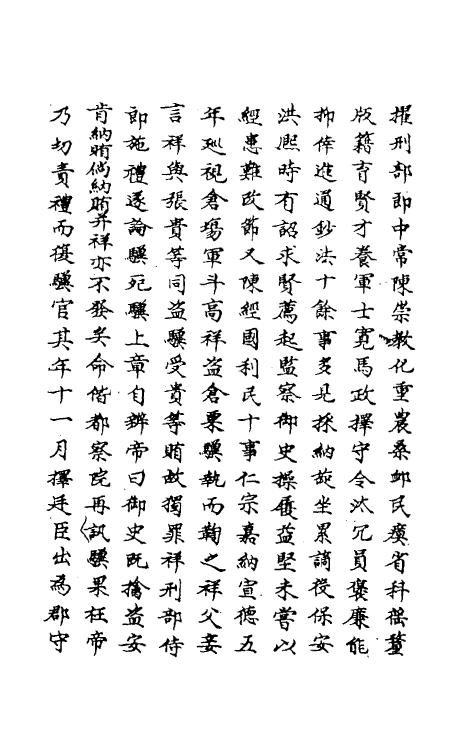 擢刑部郎中常陳崇教化重農桑䘏民瘼省科徭釐
版籍育賢才養軍士寛馬政擇守令汰冗員褒廉能
抑倖進通鈔法十餘事多見採納㫌坐累謫役保安
洪熙時有詔求賢薦起監察御史操履益堅未嘗以
經患難改節又陳經國利民十事仁宗嘉納宣德五
年廵視倉塲軍斗高祥盗倉粟驥執而鞫之祥父妾
言祥與張貴等同盗驥受貴等賄故獨罪祥刑部侍
郎施禮遂論驥死驥上章自辯帝曰御史既擒盗安
肯納賄倘納賄并祥亦不發矣命偕都察院再訊驥果枉帝
乃切責禮而復驥官其年十一月擇廷臣出為郡守